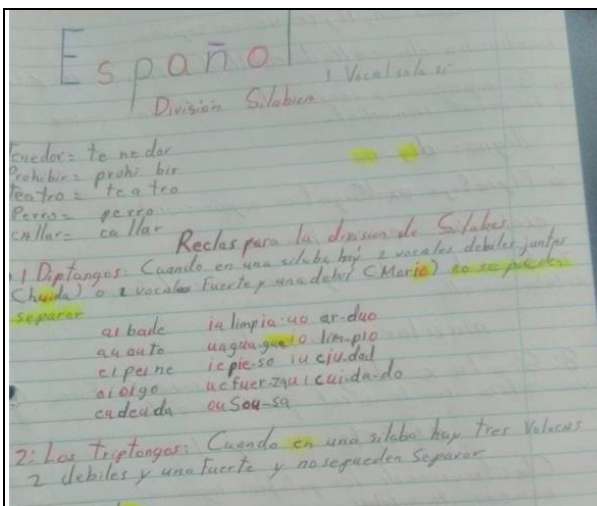 Español
1 Vocal sola si
División Silabica
Tenedor= te ne dor
Prohibir= prohi bir
Teatro= tea tro
Perro= perro
callar= ca llar
Reclas para la division de Silabas:
1 Diptongos: Cuando en una silaba hay 2 vocales debiles juntas
(huida) o 1 vocales Fuerte y una debil (Mario) no se pueden
separar
ai baile ia limpia uo ar-duo
au auto ua agua-gua io lim-pio
ei peine ie pie-so iu ciu-dad
oi oigo ue fuer-za ui cui-da-do
eu deuda ou Sou-sa
2: Los Triptongos: Cuando en una silaba hay tres
2 debiles y una Fuerte y no se pueden Separar